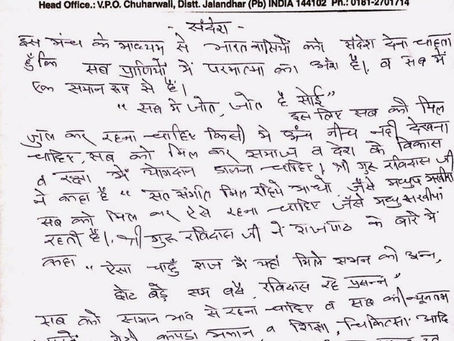 Head Office.: V.P.O. Chuharwali, Distt. Jalandhar (Pb) INDIA 144102 Ph.: 0181-2701714
- संदेश -
इस मंच के माध्यम से भारत वासियों को संदेश देना चाहता
हूँ कि सब प्राणियों में परमात्मा का अंश है। व सब में
एक समान रूप से है।
" सब में जोत, जोत है सोई"
इस लिए सब को मिल
जुल कर रहना चाहिए किसी में ऊँच नीच नही देखना
चाहिए, सब को मिल कर समाज व देश के विकास
व रक्षा में योगदान डालना चाहिए। श्री गुरु रविदास जी
ने कहा है " सत संगति मिल रहिये माधो जैसे मधुप मखीरा
सब को मिल कर ऐसे रहना चाहिए जैसे मधु मखीयां
रहती है। श्री गुरु रविदास जी ने राजपाठ के बारे में
कहा " ऐसा चाहूँ राज मैं यहां मिले सभन को अन्न,
छोट बड़े सम बसै, रविदास रहे प्रसन्न"
सब को समान भाव से रहना चाहिए व सब को न्यूनतम
रोटी कपड़ा मकान व शिक्षा, चिकित्सा आदि